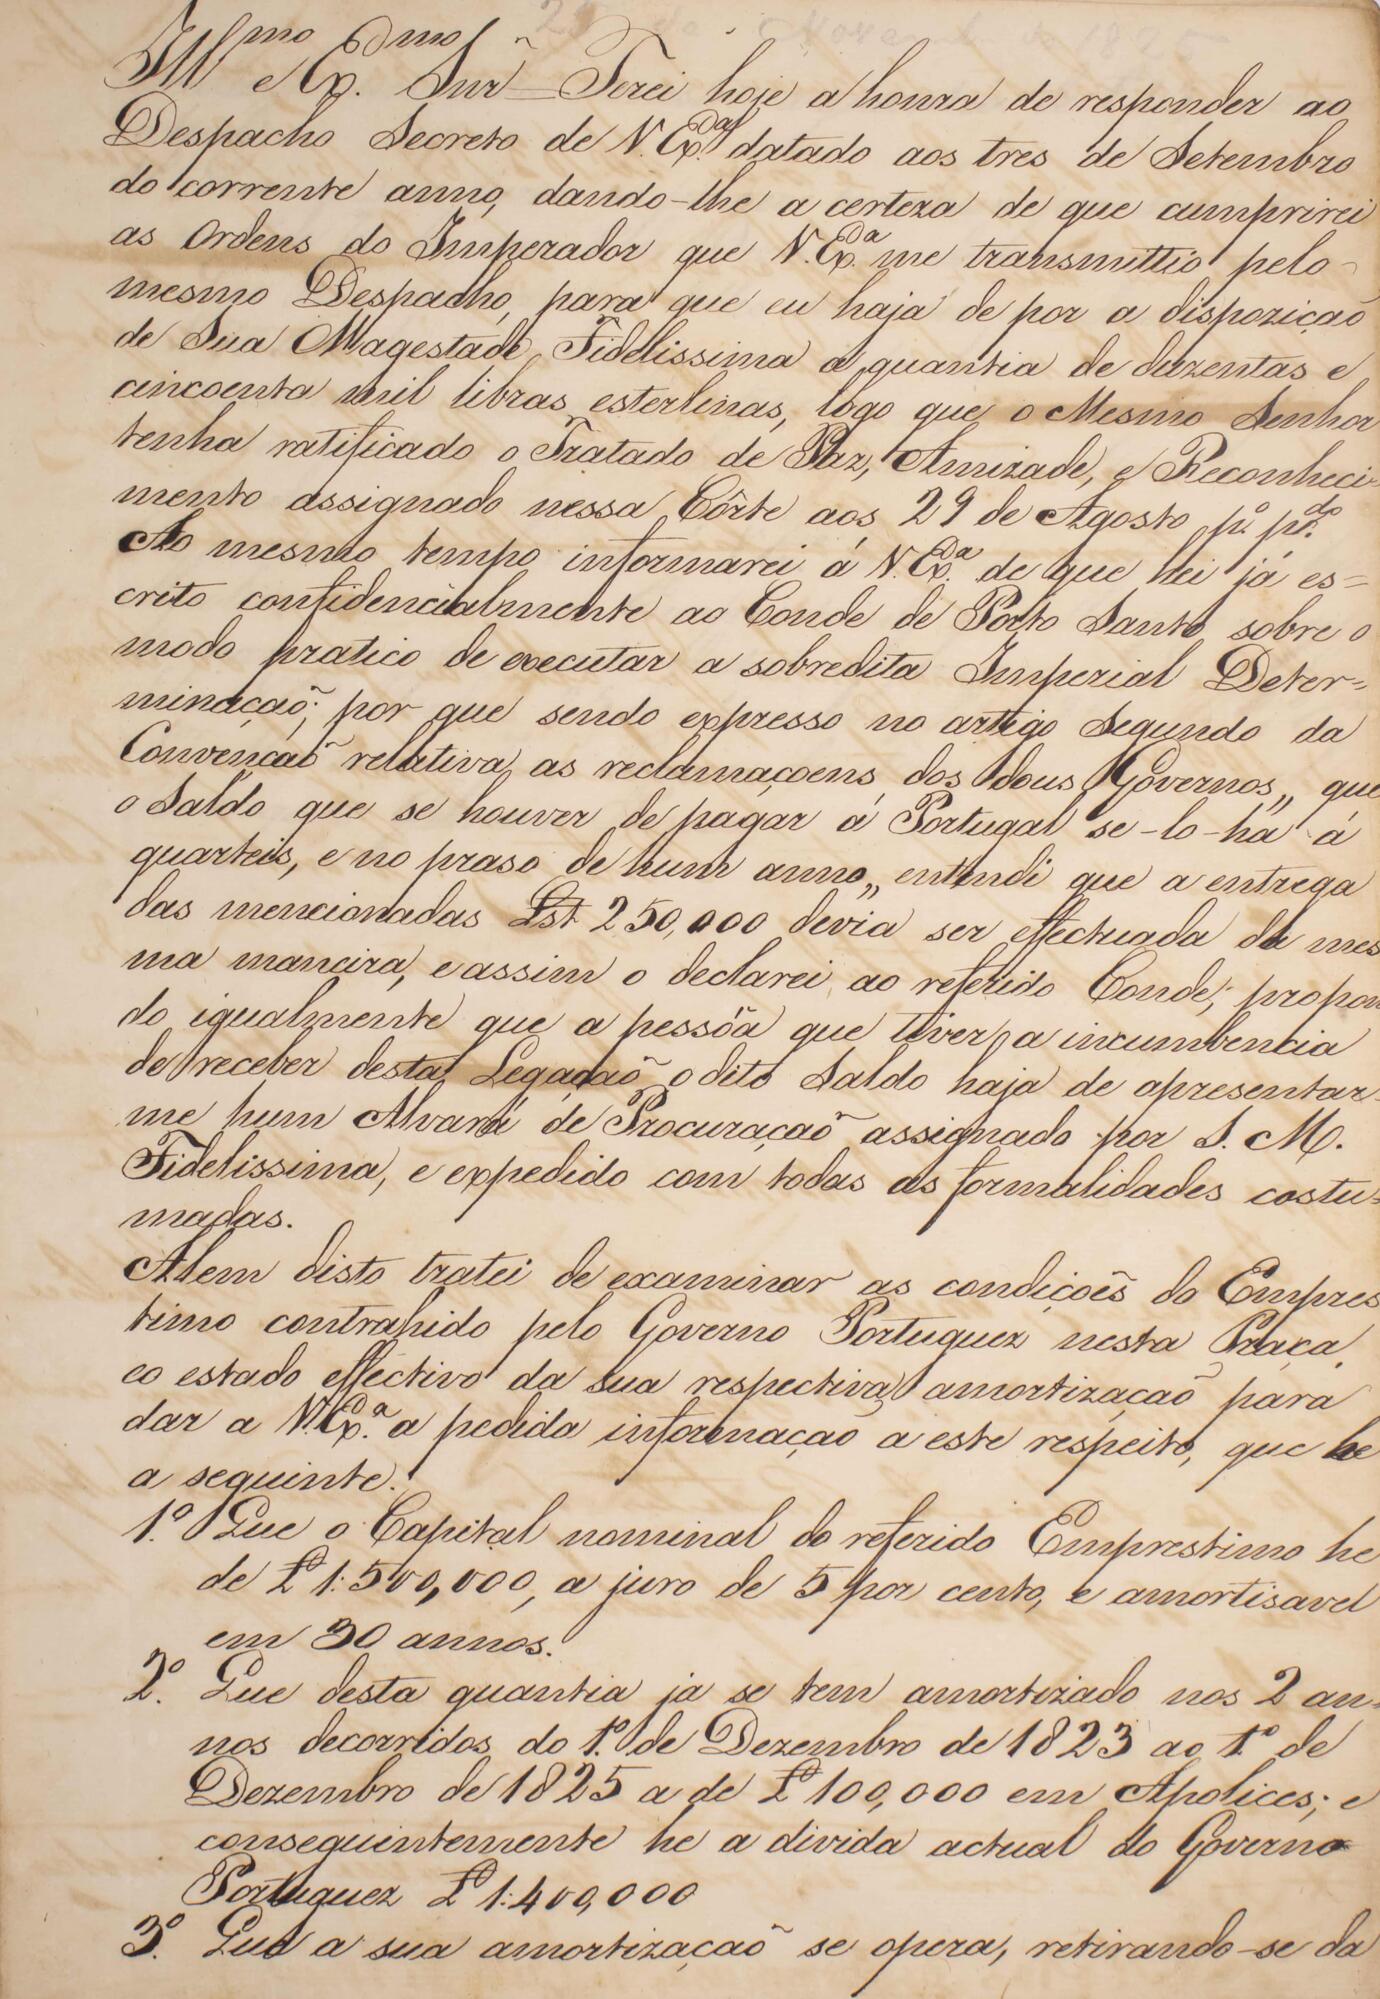 Ill.mo e Ex.mo Snr̃ = Terei hoje a honra de responder ao
Despacho Secreto de V. Ex.a datado aos tres de Setembro
do corrente anno, dando-lhe a certeza de que cumprirei
as Ordens do Imperador que V. Ex.a me transmittio pelo
mesmo Despacho, para que eu haja de por a dispozição
de Sua Magestade Fidelissima a quantia de duzentas e
cincoenta mil libras esterlinas, logo que o Mesmo Senhor
tenha ratificado o Tratado de Paz, Amizade, e Reconheci-
mento assignado nessa Côrte aos 29 de Agosto p.o p.do
Ao mesmo tempo informarei á V. Ex.a de que hei já es=
crito confidencialmente ao Conde de Porto Santo sobre o
modo pratico de executar a sobredita Imperial Deter=
minaçaõ; por que sendo expresso no artigo Segundo da
Convençaõ relativa as reclamaçoens dos dous Governos „ que
o Saldo que se houver de pagar á Portugal se-lo-há á
quarteis, e no praso de hum anno „ entendi que a entrega
das mencionadas Lst 250,000 devia ser effectuada da mes
ma maneira, e assim o declarei ao referido Conde; propon
do igualmente que a pessõa que tiver a incumbencia
de receber desta Legaçaõ o dito Saldo haja de apresentar-
me hum Alvará de Procuraçaõ assignado por S. M.
Fidelissima, e expedido com todas as formalidades costu-
madas.
Alem disto tratei de examinar as condiçoẽs do Empres
timo contrahido pelo Governo Portuguez nesta Praça,
e o estado effectivo da sua respectiva amortizaçaõ para
dar a V. Ex.a a pedida informaçaõ a este respeito, que he
a seguinte.
1.o Que o Capital nominal do referido Emprestimo he
de £ 1:500,000, a juro de 5 por cento, e amortisavel
em 30 annos.
2.o Que desta quantia ja se tem amortizado nos 2 an-
nos decorridos do 1.o de Dezembro de 1823 ao 1.o de
Dezembro de 1825 a de £ 100,000 em Apolices; e
consequintemente he a divida actual do Governo
Portuguez £ 1:400,000
3.o Que a sua amortizaçaõ se opera, retirando-se da